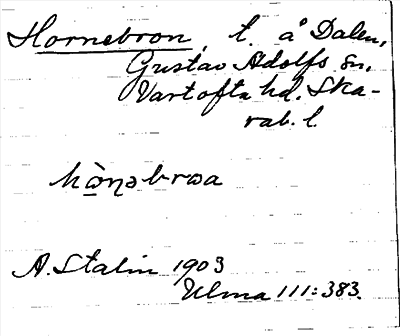 Hornebron, t. å Dalen,
Gustav Adolfs sn,
Vartofta hd. Ska-
rab. l.
hò̱ṇəbrɷa
A. Stalin 1903
Ulma 111:383.